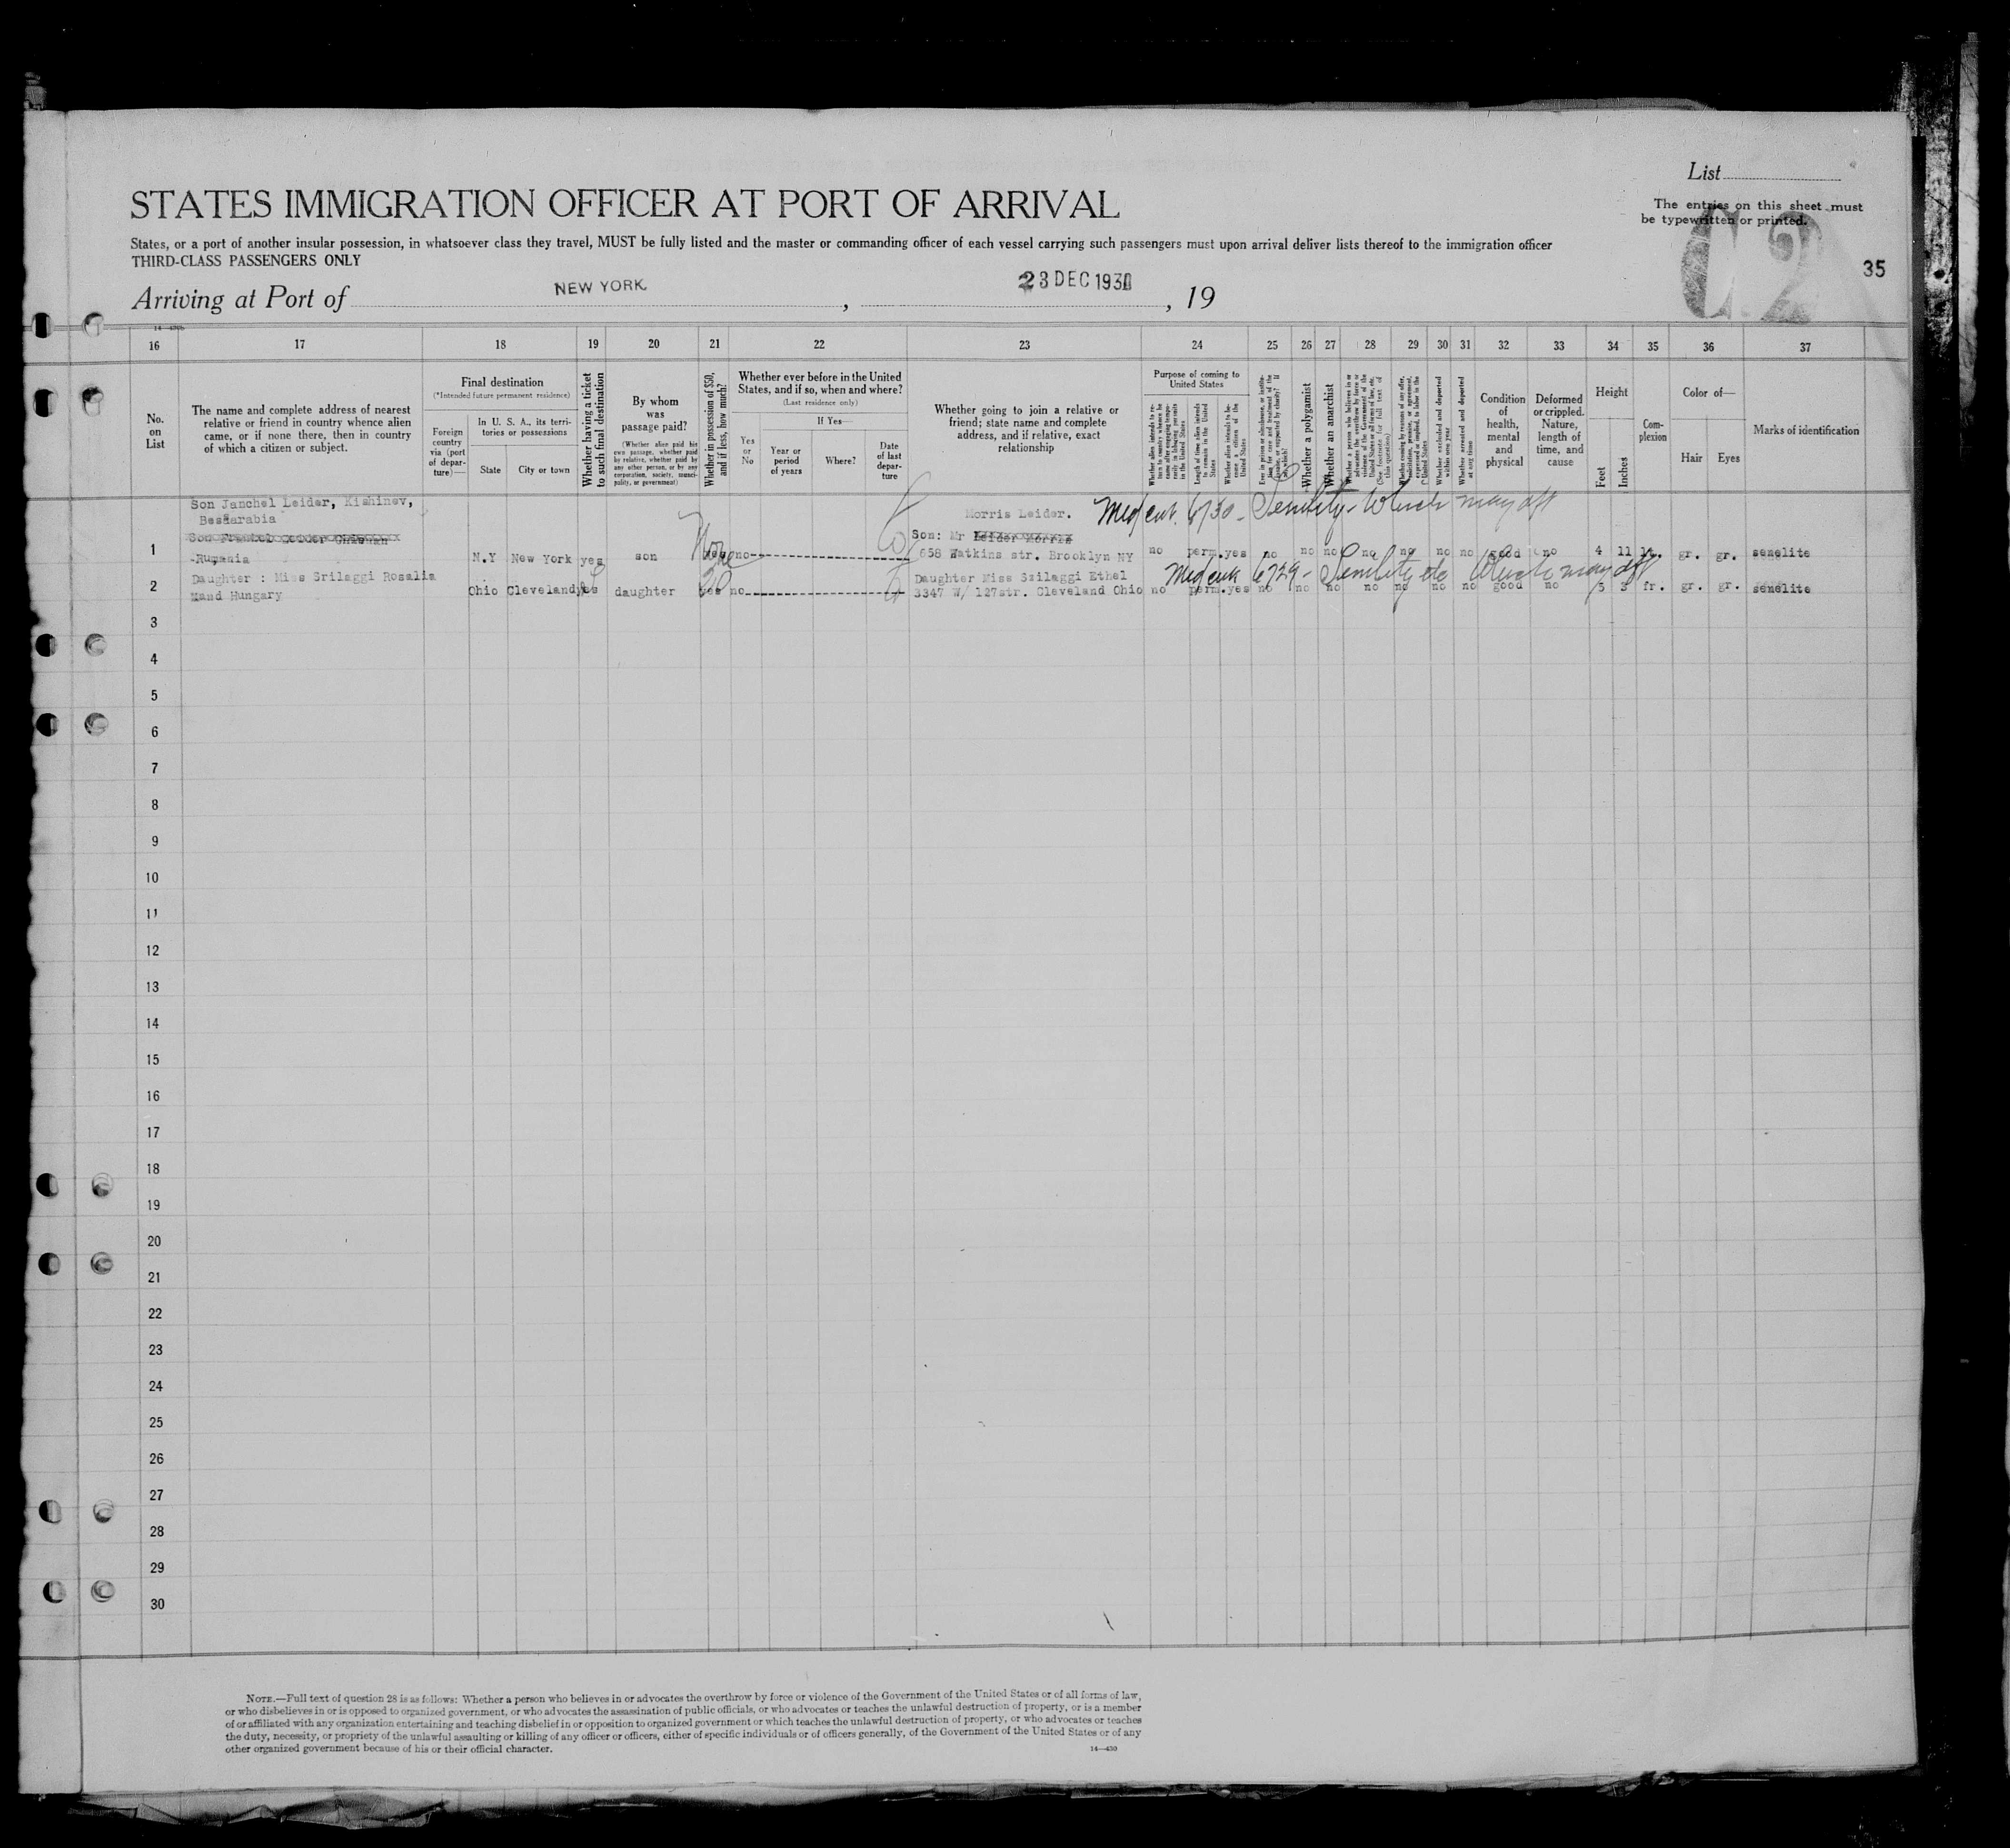 List
The entries on this sheet must
be typewritten or printed.
STATES IMMIGRATION OFFICER AT PORT OF ARRIVAL
States, or a port of another insular possession, in whatsoever class they travel, MUST be fully listed and the master or commanding officer of each vessel carrying such passengers must upon arrival deliver lists thereof to the immigration officer
THIRD-CLASS PASSENGERS ONLY
C2
35
Arriving at Port of NEW YORK, 23 DEC 1930, 19
16 17 18 19 20 21 22 23 24 25 26 27 28 29 30 31 32 33 34 35 36 37
No.
on
List
The name and complete address of nearest
relative or friend in country whence alien
came, or if none there, then in country
of which a citizen or subject.
Final destination
(*Intended future permanent residence)
Foreign
country
via (port
of depar-
ture)—
In U. S. A., its terri-
tories or possessions
State
City or town
Whether having a ticket
to such final destination
By whom
was
passage paid?
(Whether alien paid his
own passage, whether paid
by relative, whether paid by
any other person, or by any
corporation, society, munici-
pality, or government)
Whether in possession of $50,
and if less, how much?
Whether ever before in the United
States, and if so, when and where?
(Last residence only)
Yes
or
No
If Yes—
Year or
period
of years
Where?
Date
of last
depar-
ture
Whether going to join a relative or
friend; state name and complete
address, and if relative, exact
relationship
Purpose of coming to
United States
Whether alien intends to re-
turn to country whence he
came after engaging tempo-
rarily in laboring pursuits
in the United States
Length of time alien intends
to remain in the United
States
Whether alien intends to be-
come a citizen of the
United States
Whether a polygamist
Whether an anarchist
Whether excluded and deported
within one year
Whether arrested and deported
at any time
Condition
of
health,
mental
and
physical
Deformed
or crippled.
Nature,
length of
time, and
cause
Height
Feet
Inches
Com-
plexion
Color of—
Hair
Eyes
Marks of identification
Son Janchel Leider, Kishinev,
Bessarabia
Morris Leider.
Med cert. 6730 - Senility - Which may aff
Son: Mr Leider Morris
1 -Rumania N.Y New York yes son None no 658 Watkins str. Brooklyn NY no perm. yes no no no no no no no good no 4 11 gr. gr. senelite
Med cert 6729 - Senility etc Which may aff
Daughter : Miss Srilaggi Rosalia
Daughter Miss Szilaggi Ethel
2 Mand Hungary Ohio Cleveland yes daughter yes no 3347 W/ 127str. Cleveland Ohio no perm. yes no no no no no no no good no 5 3 fr. gr. gr. senelite
3
4
5
6
7
8
9
10
11
12
13
14
15
16
17
18
19
20
21
22
23
24
25
26
27
28
29
30
NOTE.—Full text of question 28 is as follows: Whether a person who believes in or advocates the overthrow by force or violence of the Government of the United States or of all forms of law,
or who disbelieves in or is opposed to organized government, or who advocates the assassination of public officials, or who advocates or teaches the unlawful destruction of property, or is a member
of or affiliated with any organization entertaining and teaching disbelief in or opposition to organized government or which teaches the unlawful destruction of property, or who advocates or teaches
the duty, necessity, or propriety of the unlawful assaulting or killing of any officer or officers, either of specific individuals or of officers generally, of the Government of the United States or of any
other organized government because of his or their official character.
14—430